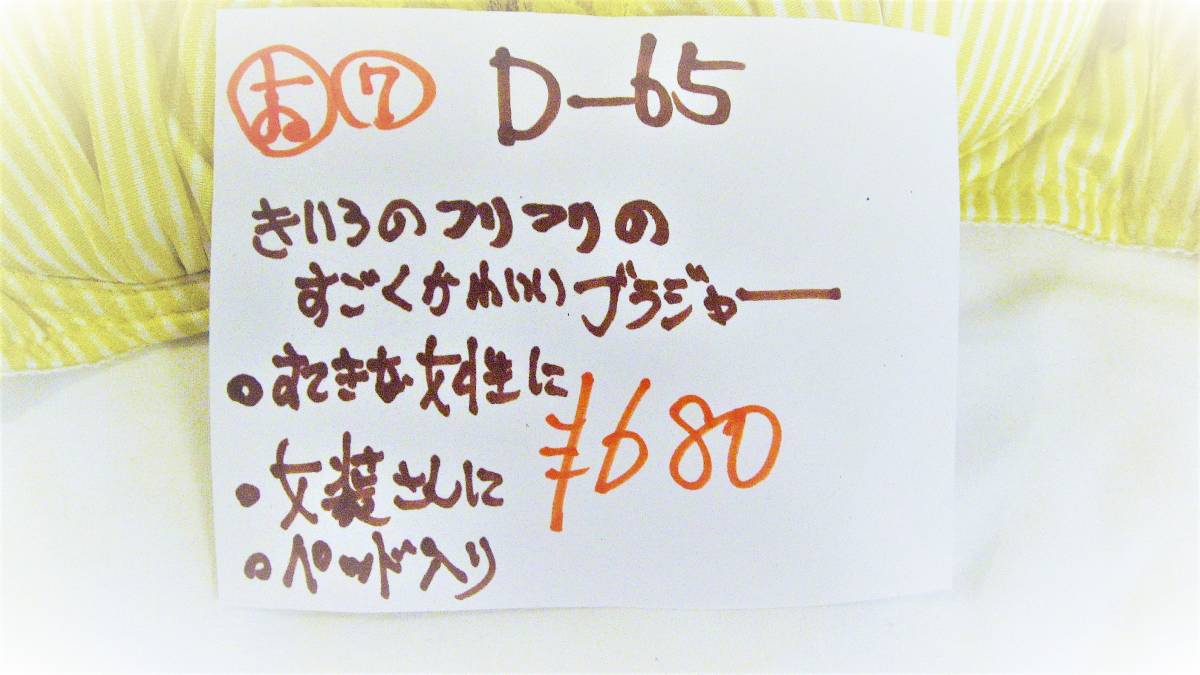 お 7 D-65
きいろのフリフリの
すごくかわいいブラジャー
・すてきな女性に
¥680
・女装さんに
・パッド入り